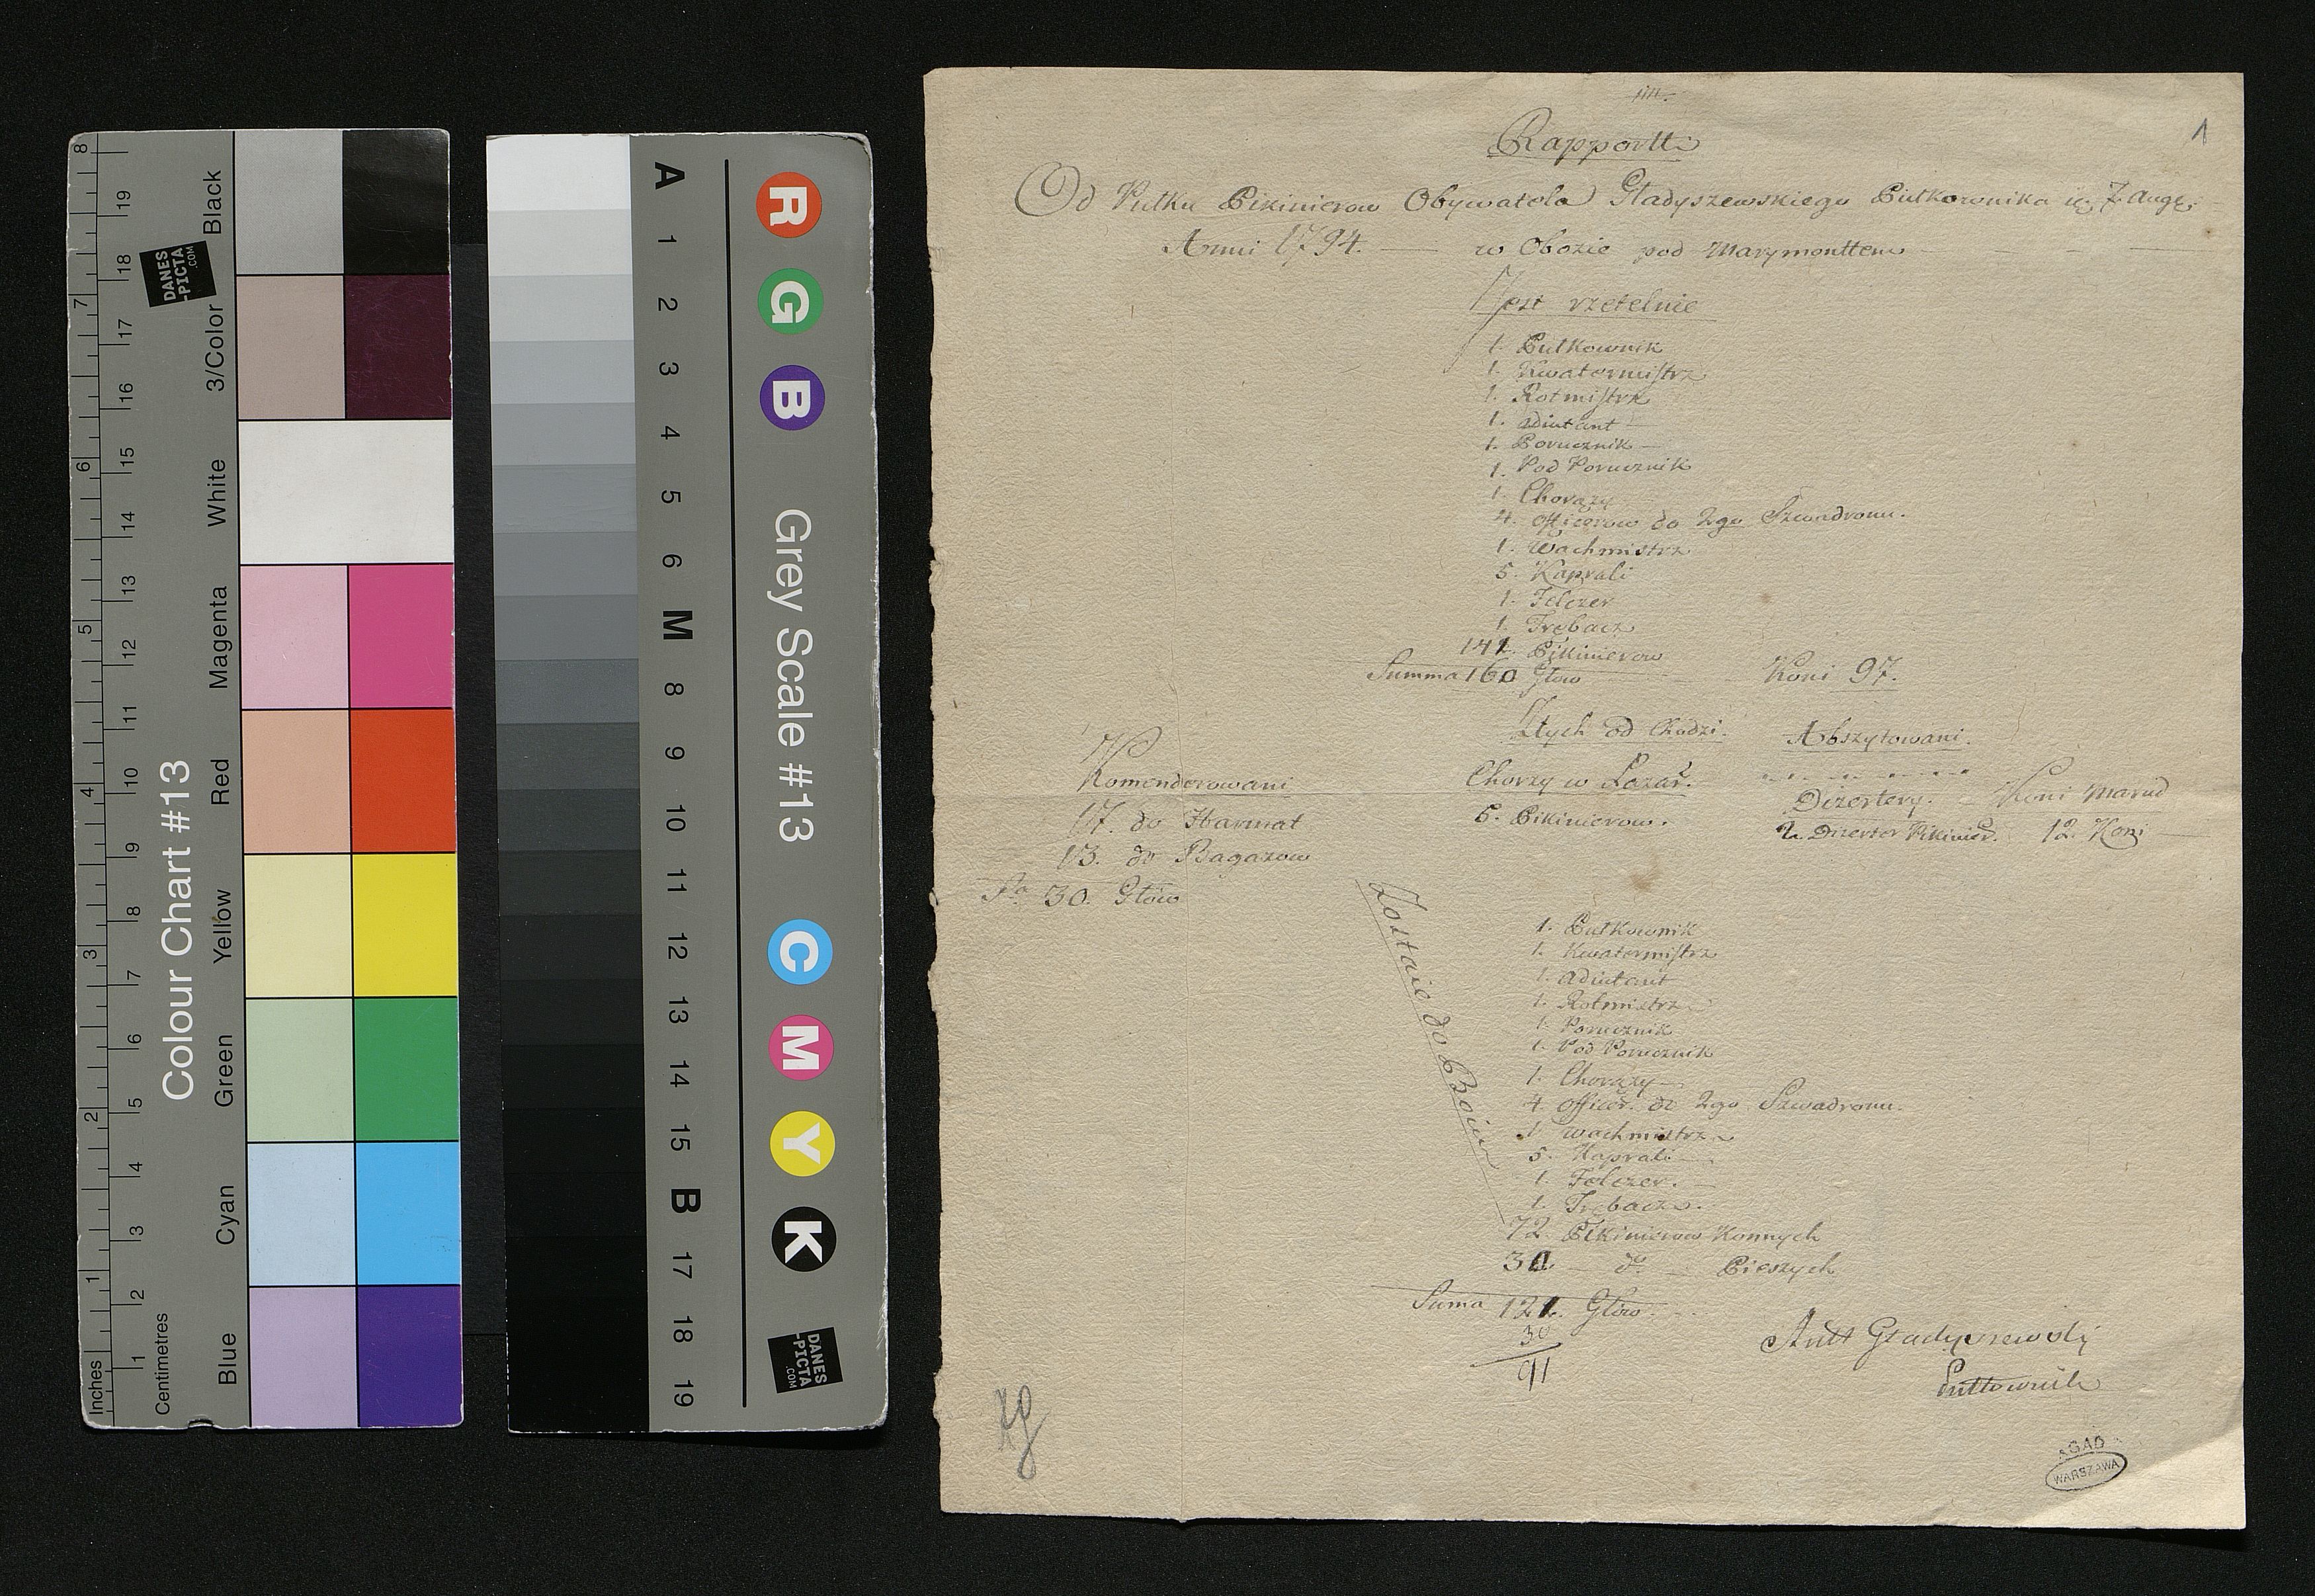 Rapportt
1
Od Pułku Pikinierow Obywatela Gładyszewskiego Pułkownika 7 Aug.
Anni 1794. — w Obozie pod Marymonttem
Jest rzetelnie
1. Pułkownik
1. Kwatermistrz
1. Rotmistrz
1. Adiutant
1. Porucznik
1. Pod Porucznik
1. Chorązy
4. officerow do 2go Szwadronu.
1. Wachmistrz
5. Kaprali
1. Felczer
1. Trębacz
141. Pikinierow
Summa 160 Głow Koni 97.
Ztych od Chodzi. Abszytowani.
Komenderowani Chorzy w Lazar.
Dizertery. Koni Marud
17. do Harmat 6. Pikinierow. 2. Dizerter Pikinier. 12. Koni
13. do Bagazow
Sa 30. Głów
Zostaie do bZoiu
1. Pułkownik
1. Kwatermistrz
1. Adiutant
1. Rotmistrz
1. Porucznik
1. Pod Porucznik
1. Chorązy
4. officer. do 2go Szwadronu.
1. Wachmistrz
5. Kaprali
1. Felczer.
1. Trębacz.
72 Pikinierow Konnych
30 — do — Pieszych
Suma 121. Głów.
30
91
Antt Gładyszewski
Pułkownik
AGAD
WARSZAWA
Colour Chart #13
Blue Cyan Green Yellow Red Magenta White 3/Color Black
Inches 1 2 3 4 5 6 7 8
Centimetres 1 2 3 4 5 6 7 8 9 10 11 12 13 14 15 16 17 18 19
DANES
-PICTA
.COM
R G B Grey Scale #13 C M Y K
A 1 2 3 4 5 6 M 8 9 10 11 12 13 14 15 B 17 18 19
DANES
-PICTA
.COM